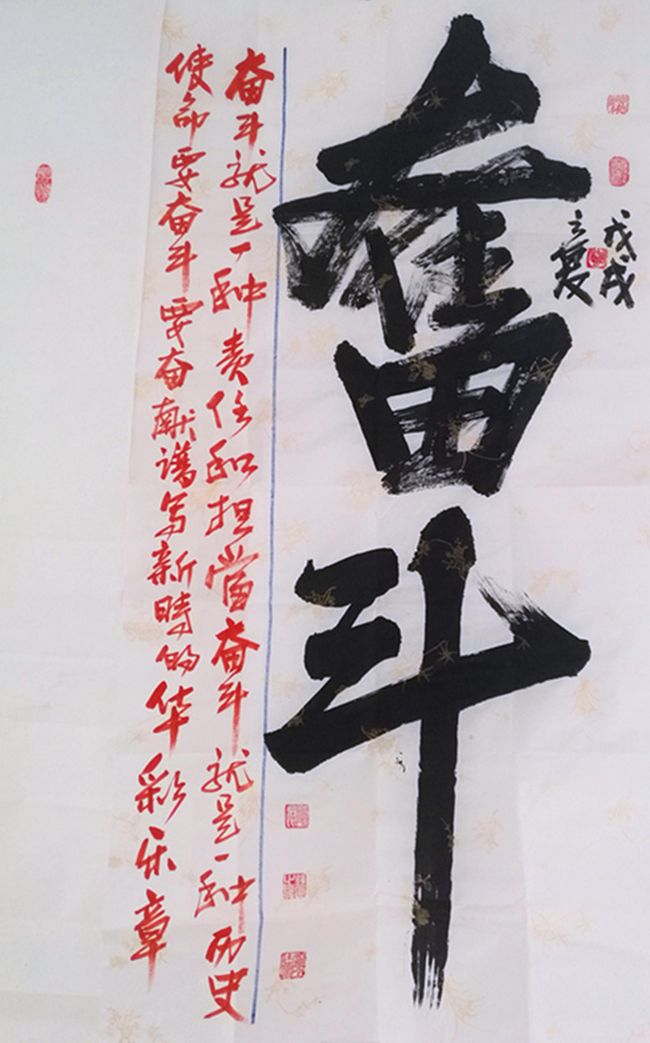 戊戌
之夏
奮斗
奋斗就是一种责任和担當奋斗就是一种历史
使命要奋斗要奋献谱写新時的华彩乐章